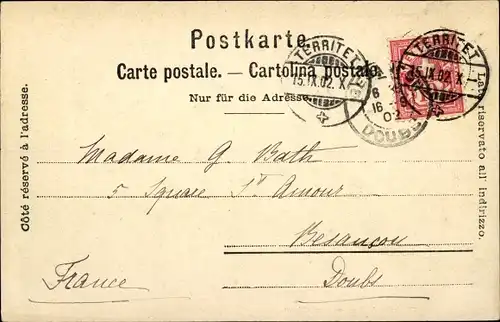 Postkarte.
Carte postale. — Cartolina postale.
Nur für die Adresse.
Côté réservé à l'adresse.
Lato riservato all' indirizzo.
TERRITET
15.IX.02.X
TERRITET
15.IX.02.X
16
DOUBS
Madame G. Bath
5 Square St Amour
Besançon
France
Doubs